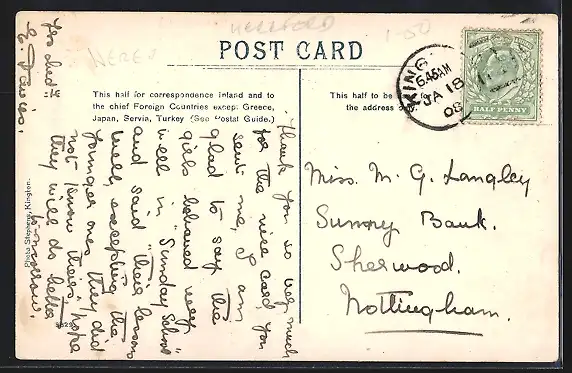 HEREFORD
1-50
HERE
POST CARD
This half for correspondence inland and to
the chief Foreign Countries except Greece,
Japan, Servia, Turkey (See Postal Guide.)
This half to be
the address
KING
6.45AM
JA 18
08
HALF PENNY
Thank you so very much
for the nice card you
sent me, I am
glad to say the
girls behaved very
well in "Sunday School"
and said their lessons
well, excepting the
younger ones they did
not know theirs, hope
they will do better
tomorrow.
E. Davies.
Miss. M. G. Langley
Sunny Bank.
Sherwood.
Nottingham.
Photo Stephens, Kington.